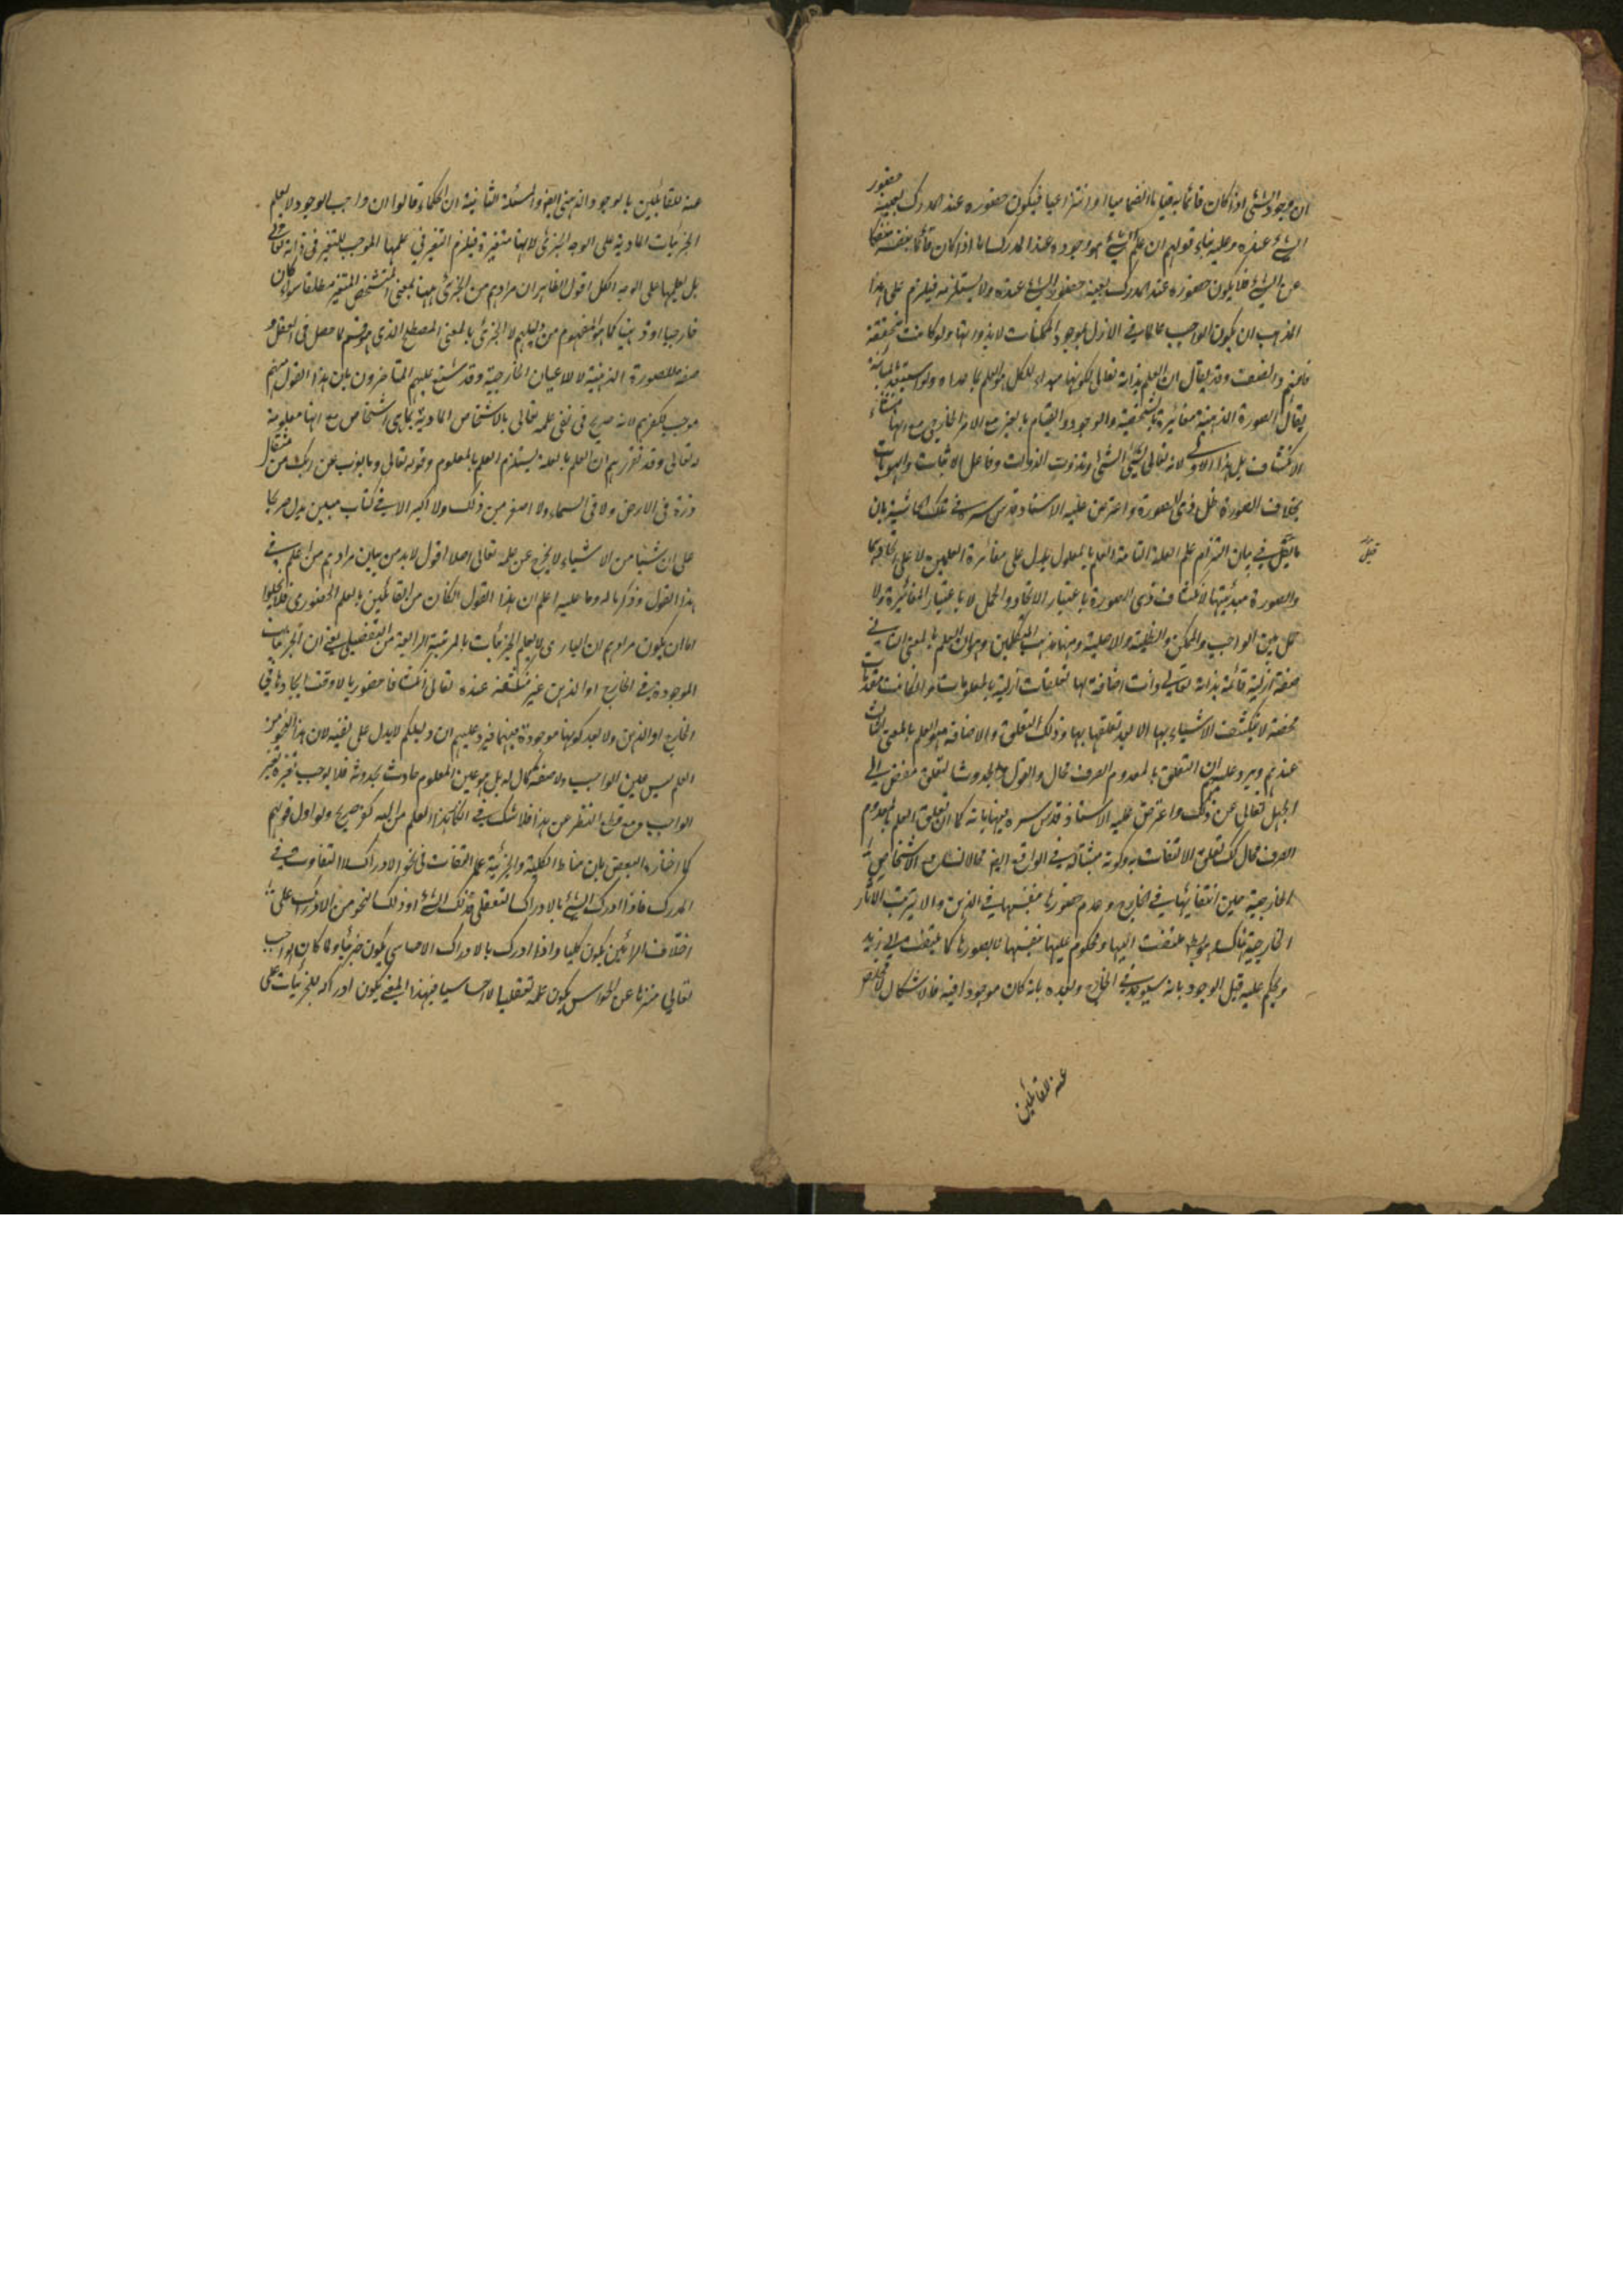 ان وجود الشئ اذا كان قائما به قياما انضماميا او انتزاعيا فيكون حضوره عند المدرك بعينه حضور
الشئ عنده وعليه بناء قولهم ان علم الشئ هو وجوده عند المدرك اما اذا كان قائما بنفسه منفكا
عن الشئ فلا يكون حضوره عند المدرك بعينه حضور الشئ عنده ولا يستلزمه فيلزم على هذا
المذهب ان يكون الواجب عالما في الازل بوجود الممكنات لا بذواتها ولو كانت متحققة
فافهم وانصفت وقد يقال ان العلم بذاته تعالى لكونها مبداء للكل هو العلم بما عداه ولو استبعد بالمباينة
يقال الصورة الذهنية مغائرة بالتشخص والوجود والقيام بالغير مع الامر الخارجي مع انها منشاء
الانكشاف بل هذا الاولى لانه تعالى مشيئ الشئ ومذوت الذوات وفاعل الاثبات والهويات
بخلاف الصورة ظل لذى الصورة واعترض عليه الاستاد قدس سره في تلك الحاشية بان
ما قيل في بيان التزام علم العلة التامة العلم بالمعلول يدل على مغائرة العلمين لا على اتحادهما
والصورة مبدئيتها لانكشاف ذى الصورة باعتبار الاتحاد والحمل لا باعتبار المغائرة ولا
حمل بين الواجب والممكن والظلية والاصلية ومنها مذهب المتكلمين وهو ان العلم بالمعنى الثانى
صفة ازلية قائمة بذاته تعالى وذات اضافة لها تعلقات ازلية بالمعلومات ولو كانت معدومات
محضة لا ينكشف الاشياء بها الا بعد تعلقها بها وذلك التعلق والاضافة هو العلم بالمعنى الثالث
عندهم ويرد عليهم ان التعلق بالمعدوم الصرف محال والقول بحدوث التعلق مفض الى
الجهل تعالى عن ذلك واعترض عليه الاستاد قدس سره فيها بانه كما ان تعلق العلم بالمعدوم
الصرف محال كك تعلق الالتفات به وكونه مبشأله في الواقع ايضا محالان مع الاشخاص
الخارجية حين انتفائها في الخارج وعدم حضورها بنفسها في الذهن والا يترتب الاثار
الخارجية هناك ملتفت اليها ومحكوم عليها بنفسها لا بصورها كما يلتفت الى زيد
ويحكم عليه قبل الوجود بانه سيوجد في الخارج وبعده بانه كان موجودا فيه فلا شكال لا مخلص
قيل
عنه للقائلين
عنه للقائلين بالوجود الذهنى ايضا والمسئلة الثانية ان الحكماء قالوا ان واجب الوجود لا يعلم
الجزئيات المادية على الوجه الجزئى لانها متغيرة فيلزم التغير في علمها الموجب للتغير في ذاته تعالى
بل يعلمها على الوجه الكلى اقول الظاهر ان مرادهم من الجزئى ههنا بمعنى المتشخص المتغير مطلقا سواء كان
خارجيا او ذهنيا كما هو المفهوم من دليلهم لا الجزئى بالمعنى المصطلح الذى هو قسم لما حصل في العقل و
صفة للصورة الذهنية لا للاعيان الخارجية وقد شنع عليهم المتاخرون بان هذا القول منهم
موجب لكفرهم لانه صريح في نفى علمه تعالى بالاشخاص المادية بما هى اشخاص مع انها معلومة
له تعالى وقد تقررهم ان العلم بالعلة يستلزم العلم بالمعلوم وقوله تعالى وما يعزب عن ربك من مثقال
ذرة في الارض ولا في السماء ولا اصغر من ذلك ولا اكبر الا في كتاب مبين يدل صريحا
على ان شيئا من الاشياء لا يخرج عن علمه تعالى اصلا اقول لا بد من بيان مرادهم من العلم في
هذا القول وذكر ماله وما عليه اعلم ان هذا القول ان كان من القائلين بالعلم الحضورى فلا يخلوا
اما ان يكون مرادهم ان البارى لا يعلم الجزئيات بالمرتبة الرابعة من التفصيلى يعنى ان الجزئيات
الموجودة في الخارج او الذهن غير منكشفة عنده تعالى انكشافا حضوريا لا وقت ايجادها في
الخارج او الذهن ولا بعد كونها موجودة فيهما فيرد عليهم ان دليلكم لا يدل على نفيه لان هذا النحو من
العلم ليس عين الواجب ولا صفة كمال له بل هو عين المعلوم حادث بحدوثه فلا يوجب تغيره تغير
الواجب ومع قطع النظر عن هذا فلا شك في ان انكار هذا العلم من الله كفر صريح ولو اول قولهم
كما اختاره البعض بان مناط الكلية والجزئية عدم التفاوت في نحو الادراك لا التفاوت في
المدرك فاذا ادرك الشئ بالادراك التعقلى فذلك الشئ او ذلك النحو من الادراك على
اختلاف الرائين يكون كليا واذا ادرك بالادراك الاحساسى يكون جزئيا ولما كان الواجب
تعالى منزها عن الحواس يكون علمه تعقليا لا احساسيا فبهذا المعنى يكون ادراكه للجزئيات على